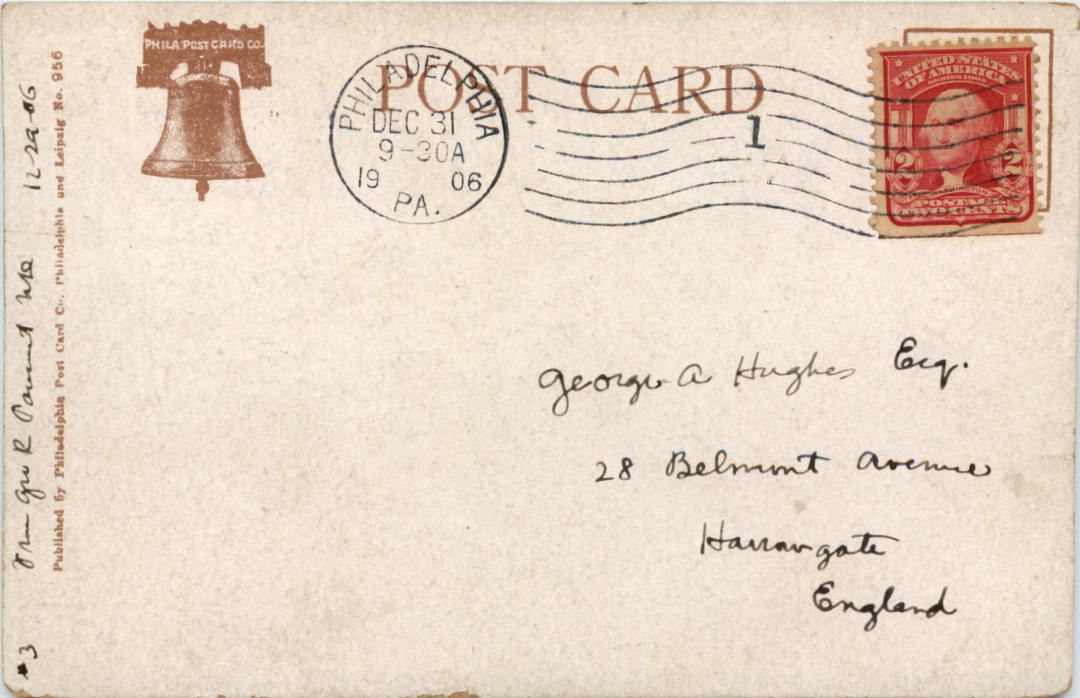 PHILA POST CARD CO.
POST CARD
PHILADELPHIA
DEC 31
9-30A
19 06
PA.
1
UNITED STATES
OF AMERICA
SERIES 1902
2 2
WASHINGTON
POSTAGE
TWO CENTS
George A Hughes Esq.
28 Belmont Avenue
Harrowgate
England
Published by Philadelphia Post Card Co., Philadelphia und Leipzig No. 956
Geo R 12-29-06
#3